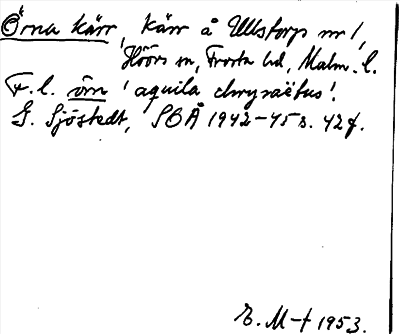 Örna kärr, Kärr å Ullstorp nr 1,
Höörs sn, Frosta hd, Malm. l.
F.l. örn 'aquila chrysaëtus'.
G. Sjöstedt, SOÅ 1942-45 s. 42 f.
E. M-t 1953.